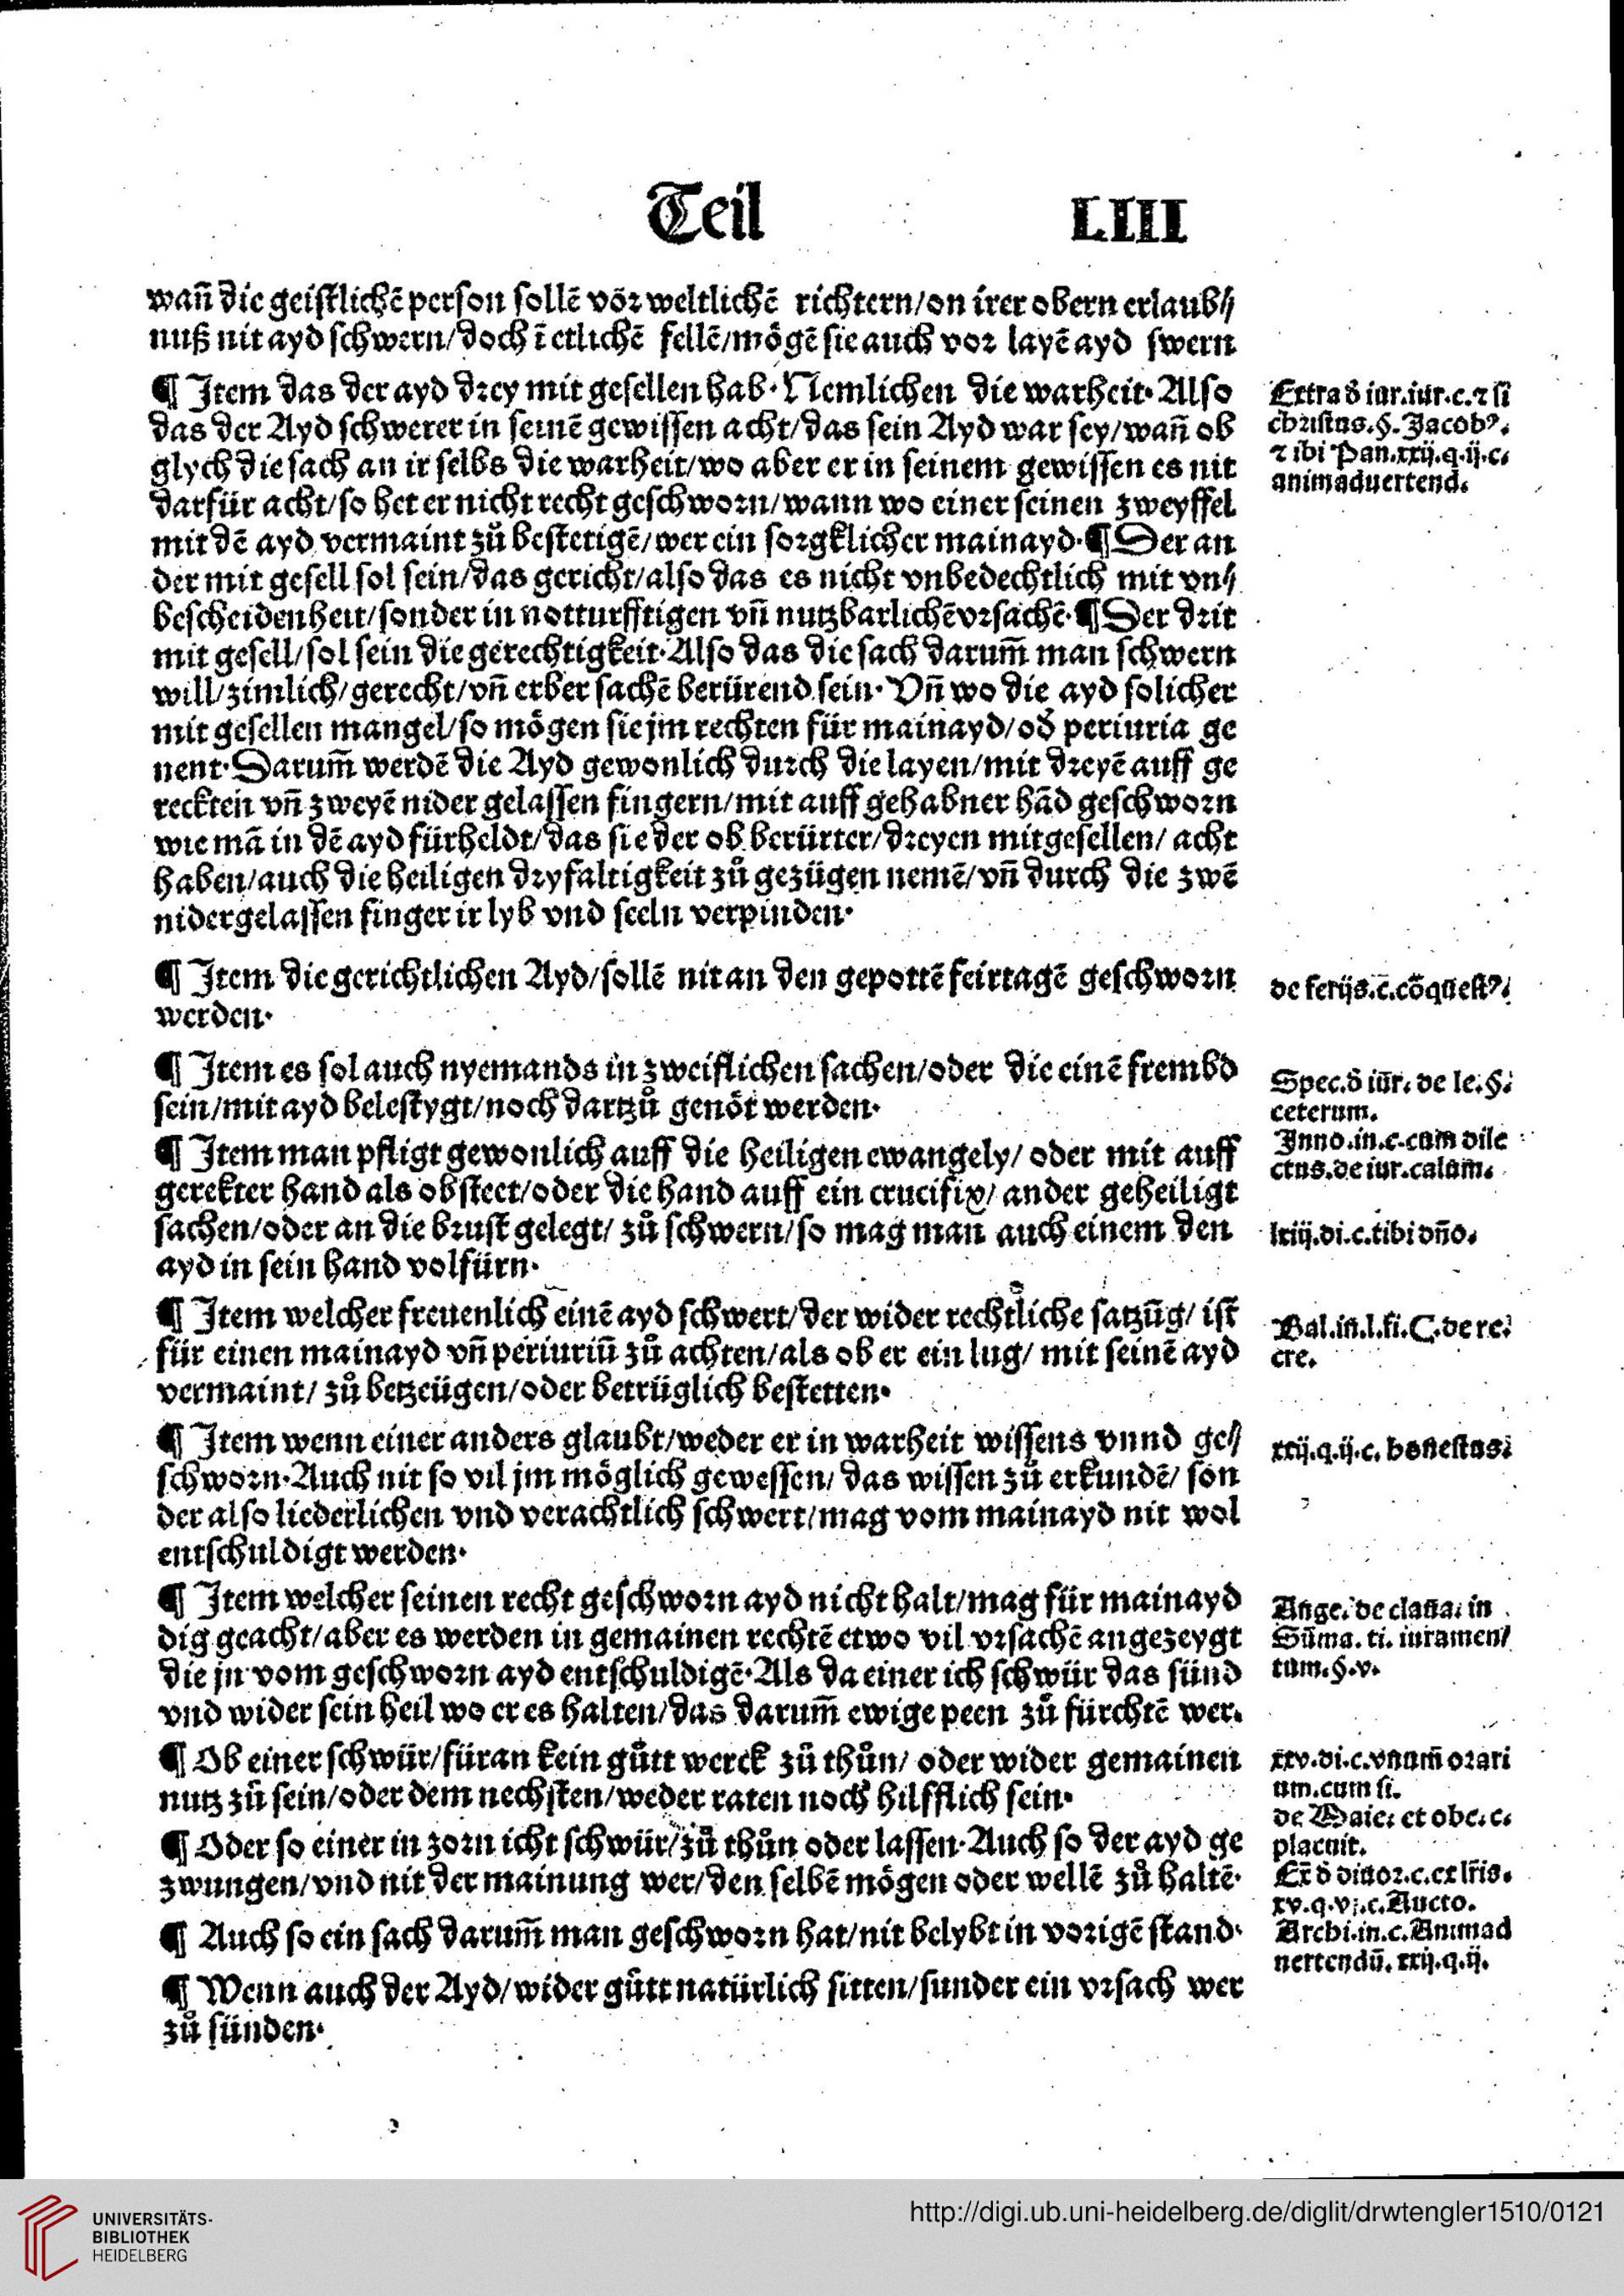 Teil LIII
wañ die geistlichẽ person sollẽ vor weltlichẽ richtern/on irer obern erlaub⸗
nuß nit ayd schwern/doch ĩ etlichẽ fellẽ/mögẽ sie auch vor layẽ ayd swern
¶ Item das der ayd drey mit gesellen hab· Nemlichen die warheit· Also
das der Ayd schwerer in seinẽ gewissen acht/das sein Ayd war sey/wañ ob
glych die sach an ir selbs die warheit/wo aber er in seinem gewissen es nit
darfür acht/so het er nicht recht geschworn/wann wo einer seinen zweyffel
mit dẽ ayd vermaint zů bestetigẽ/wer ein sorgklicher mainayd· ¶ Der an
der mit gesell sol sein/das gericht/also das es nicht vnbedechtlich mit vn⸗
bescheidenheit/sonder in notturfftigen vñ nutzbarlichẽ vrsachẽ· ¶ Der drit
mit gesell/sol sein die gerechtigkeit· Also das die sach darum̃ man schwern
will/zimlich/gerecht/vñ erber sachẽ berürend sein· Vñ wo die ayd solicher
mit gesellen mangel/so mögen sie jm rechten für mainayd/od̕ periuria ge
nent· Darum̃ werdẽ die Ayd gewonlich durch die layen/mit dreyẽ auff ge
reckten vñ zweyẽ nider gelassen fingern/mit auff gehabner hãd geschworn
wie mã in dẽ ayd fürheldt/das sie der ob berürter/dreyen mitgesellen/ acht
haben/auch die heiligen dryfaltigkeit zů gezügen nemẽ/vñ durch die zwẽ
nidergelassen finger ir lyb vnd seeln verpinden·
¶ Item die gerichtlichen Ayd/sollẽ nit an den gepottẽ feirtagẽ geschworn
werden·
¶ Item es sol auch nyemands in zweiflichen sachen/oder die einẽ frembd
sein/mit ayd belestygt/noch dartzů genöt werden·
¶ Item man pfligt gewonlich auff die heiligen ewangely/ oder mit auff
gerekter hand als obsteet/oder die hand auff ein crucifix/ ander geheiligt
sachen/oder an die brust gelegt/ zů schwern/so mag man auch einem den
ayd in sein hand volfürn·
¶ Item welcher freuenlich einẽ ayd schwert/der wider rechtliche satzũg/ ist
für einen mainayd vñ periuriũ zů achten/als ob er ein lug/ mit seinẽ ayd
vermaint/ zů betzeügen/oder betrüglich bestetten·
¶ Item wenn einer anders glaubt/weder er in warheit wissens vnnd ge⸗
schworn· Auch nit so vil jm möglich gewessen/ das wissen zů erkundẽ/ son
der also liederlichen vnd verachtlich schwert/mag vom mainayd nit wol
entschuldigt werden·
¶ Item welcher seinen recht geschworn ayd nicht halt/mag für mainayd
dig geacht/aber es werden in gemainen rechtẽ etwo vil vrsachẽ angezeygt
die jn vom geschworn ayd entschuldigẽ· Als da einer ich schwür das sünd
vnd wider sein heil wo er es halten/das darum̃ ewige peen zů fürchtẽ wer.
¶ Ob einer schwür/füran kein gůtt werck zů thůn/ oder wider gemainen
nutz zů sein/oder dem nechsten/weder raten noch hilfflich sein·
¶ Oder so einer in zorn icht schwür/zů thůn oder lassen· Auch so der ayd ge
zwungen/vnd nit der mainung wer/den selbẽ mögen oder wellẽ zů haltẽ·
¶ Auch so ein sach darum̃ man geschworn hat/nit belybt in vorigẽ stand·
¶ Wenn auch der Ayd/wider gůtt natürlich sitten/sunder ein vrsach wer
zů sünden·
Extra d̕ iur.iur.c.⁊ si
christus.§.Jacobꝰ.
⁊ ibi Pan.xxij.q.ij.c.
animaduertend.
de ferijs.c̃.cõquestꝰ.
Spec.d̕ iur̃. de le.§.
ceterum.
Inno.in.c.cum dile
ctus.de iur.calum̃.
lxiij.di.c.tibi dño.
Bal.in.l.fi.C.de re.
cre.
xxij.q.ij.c. honestus.
Ange. de claua. in
Sũma. ti. iuramen/
tum.§.v.
xxv.di.c.vnum̃ orari
um.cum si.
de Maio. et obe. c.
placuit.
Ex̃ d̕ diuor.c.ex lr̃is.
xv.q.vj.c.Aucto.
Archi.in.c.Animad
uertendũ. xxij.q.ij.
UNIVERSITÄTS-
BIBLIOTHEK
HEIDELBERG
http://digi.ub.uni-heidelberg.de/diglit/drwtengler1510/0121